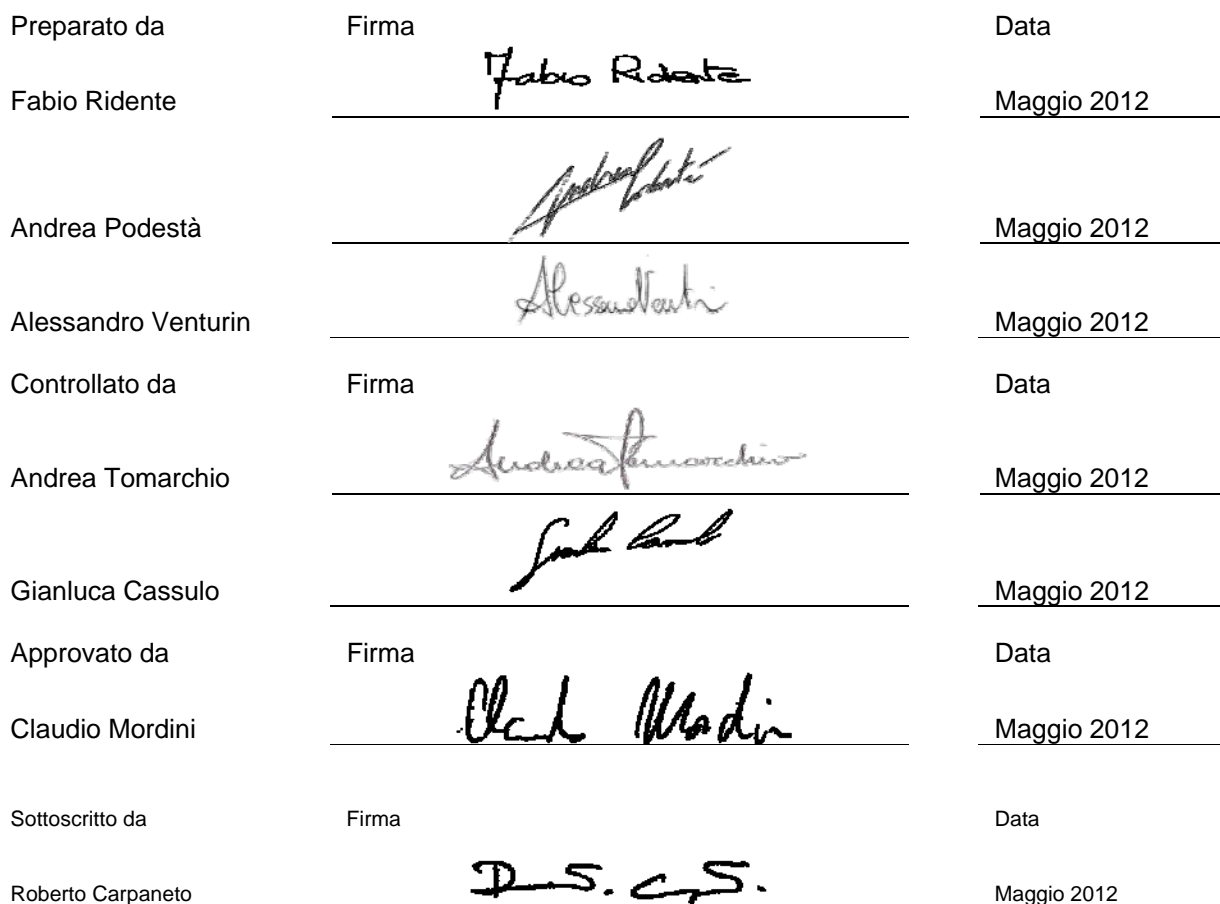 Preparato da Firma Data
Fabio Ridente
Fabio Ridente Maggio 2012
Andrea Podestà Maggio 2012
Alessandro Venturin Maggio 2012
Controllato da Firma Data
Andrea Tomarchio
Andrea Tomarchio Maggio 2012
Gianluca Cassulo Maggio 2012
Approvato da Firma Data
Claudio Mordini Maggio 2012
Sottoscritto da Firma Data
Roberto Carpaneto Maggio 2012